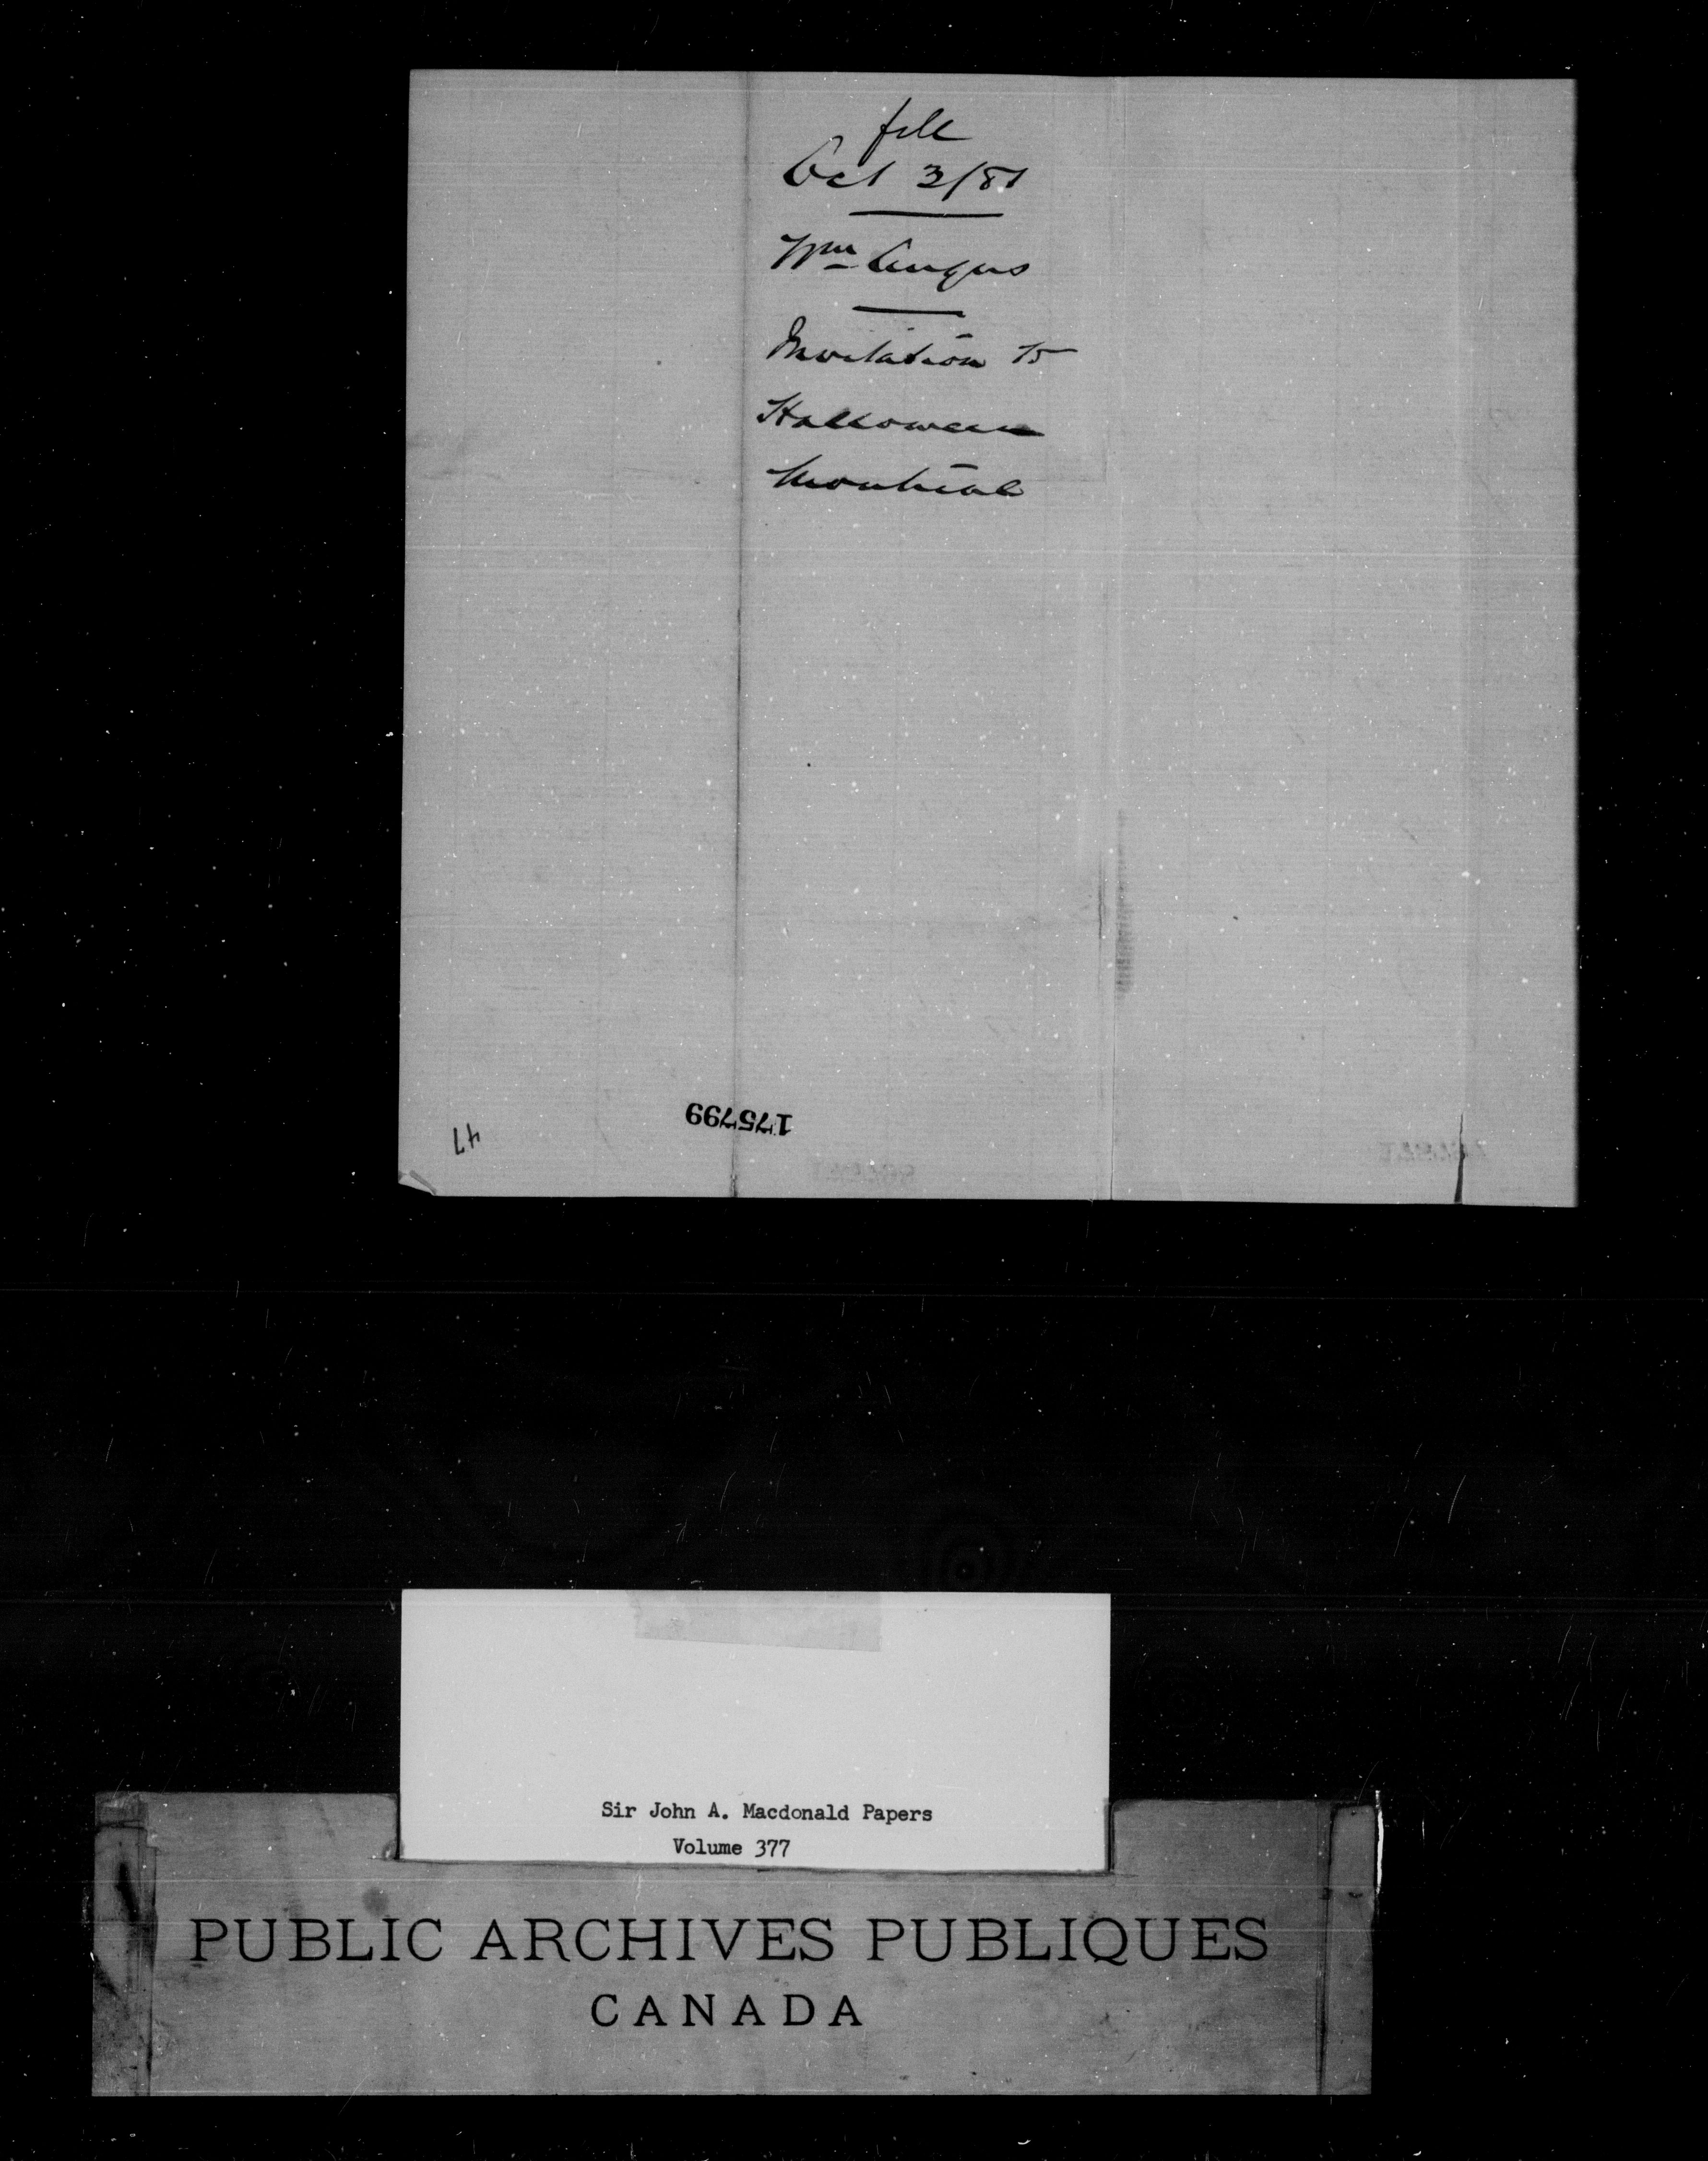 file
Oct 3/81
Wm Angus
Invitation to
Halloween
Montreal
47
175799
Sir John A. Macdonald Papers
Volume 377
PUBLIC ARCHIVES PUBLIQUES
CANADA